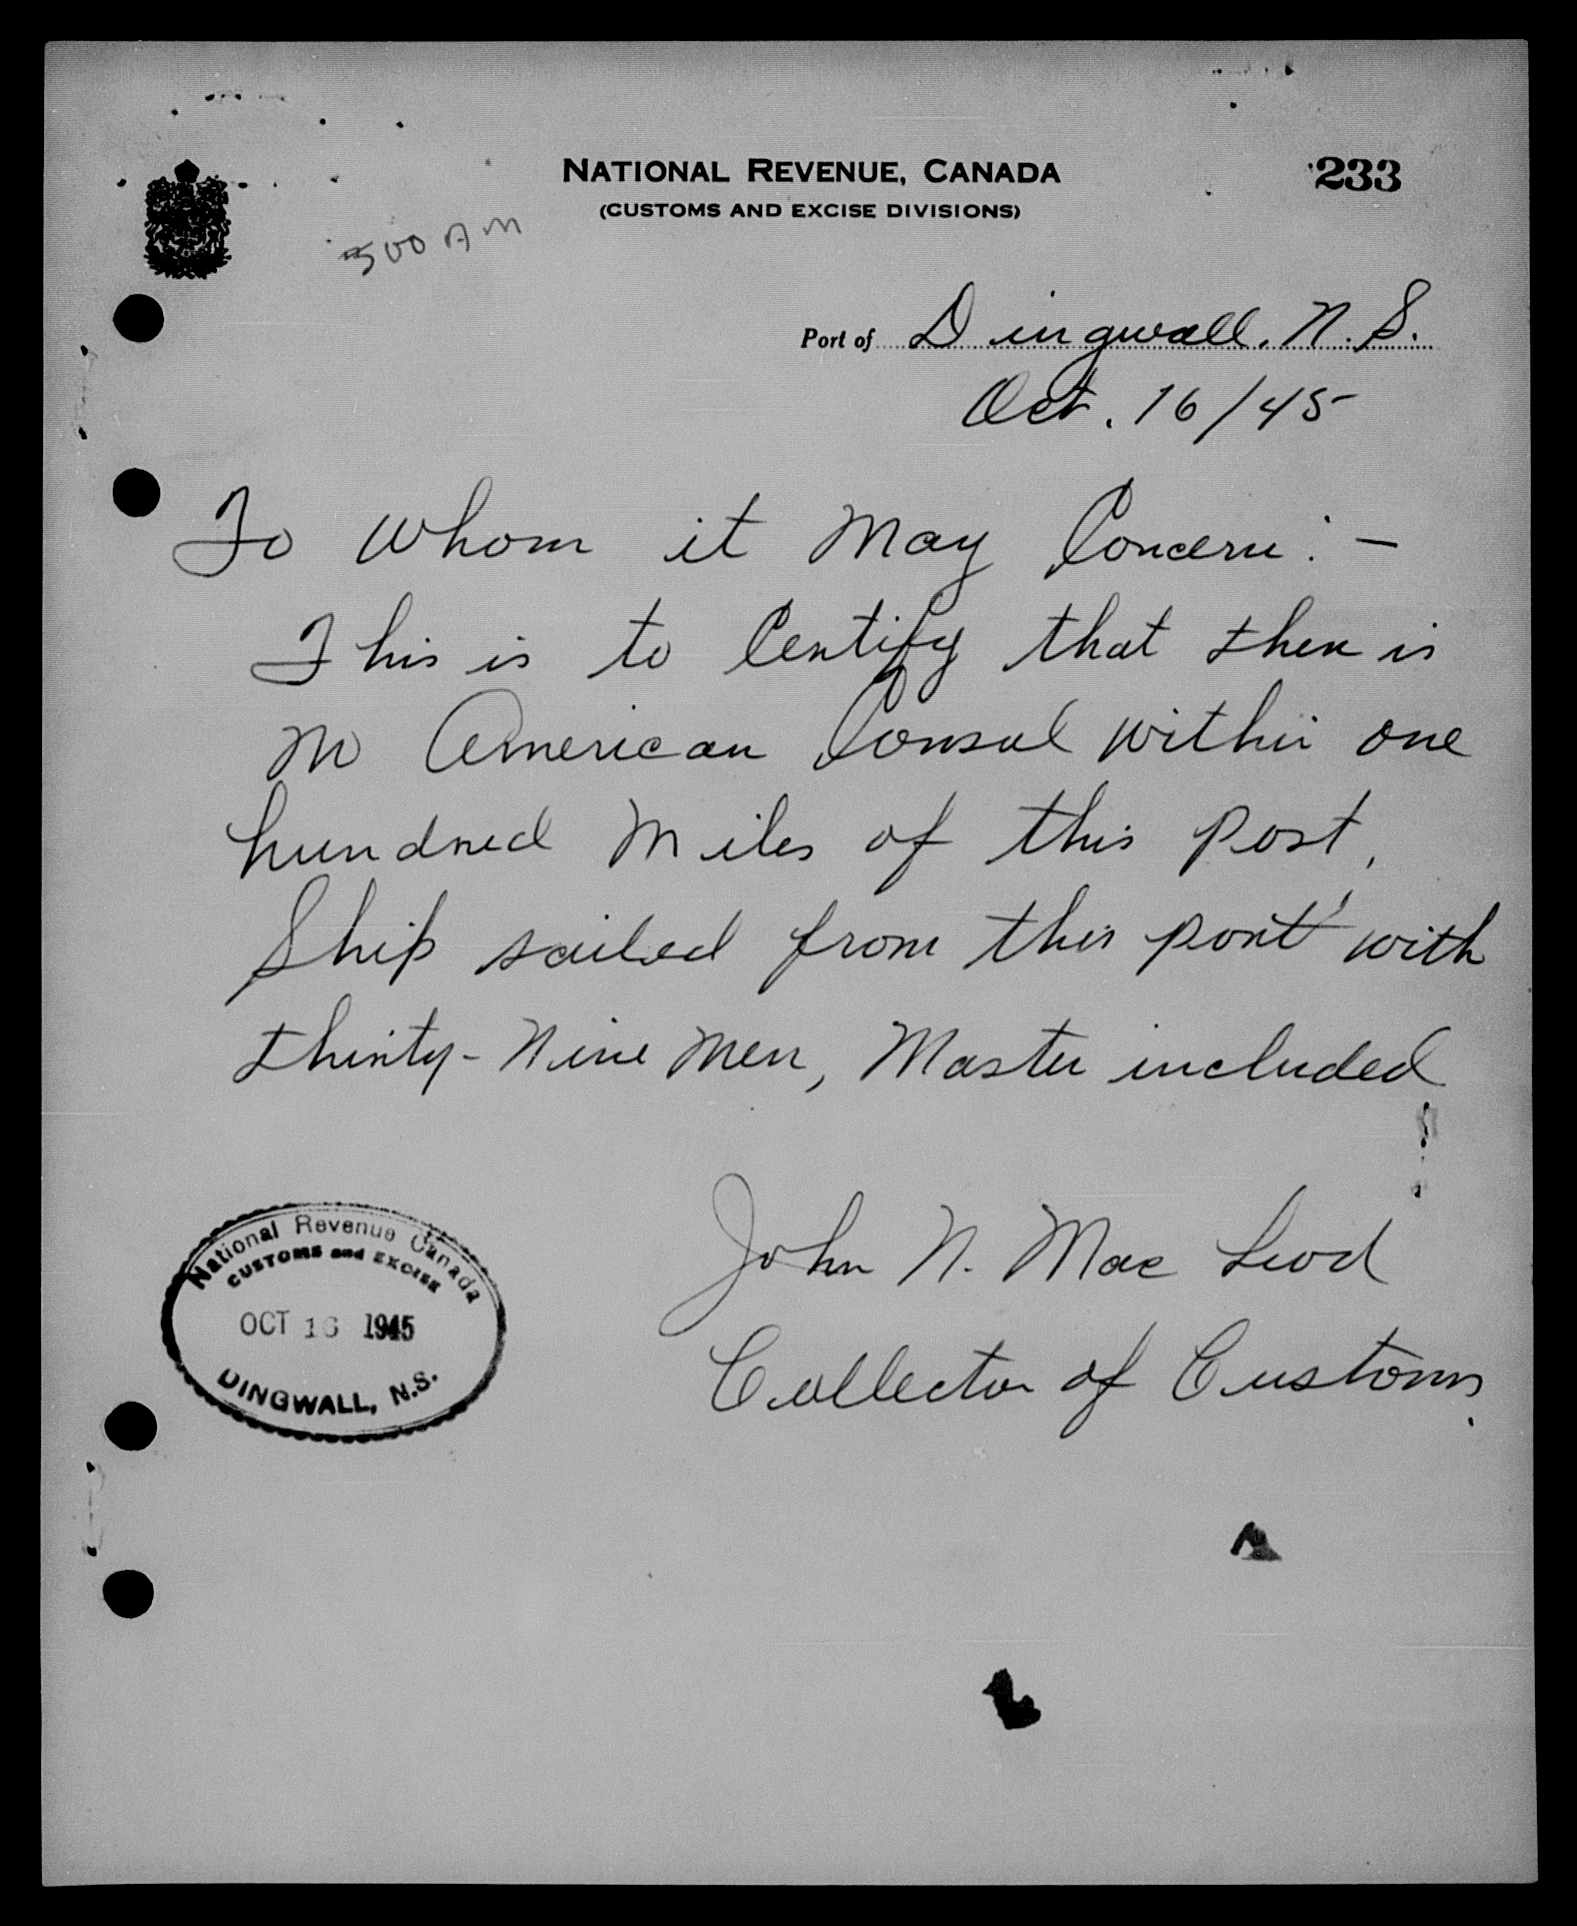 NATIONAL REVENUE, CANADA
(CUSTOMS AND EXCISE DIVISIONS)
233
500 AM
Port of Dingwall, N.S.
Oct. 16/45
To Whom it May Concern:-
This is to Certify that there is
no American Consul within one
hundred Miles of this Port,
Ship sailed from this port with
thirty-Nine Men, Master included
John N. Mac Leod
Collector of Customs.
National Revenue Canada
CUSTOMS and EXCISE
OCT 16 1945
DINGWALL, N.S.